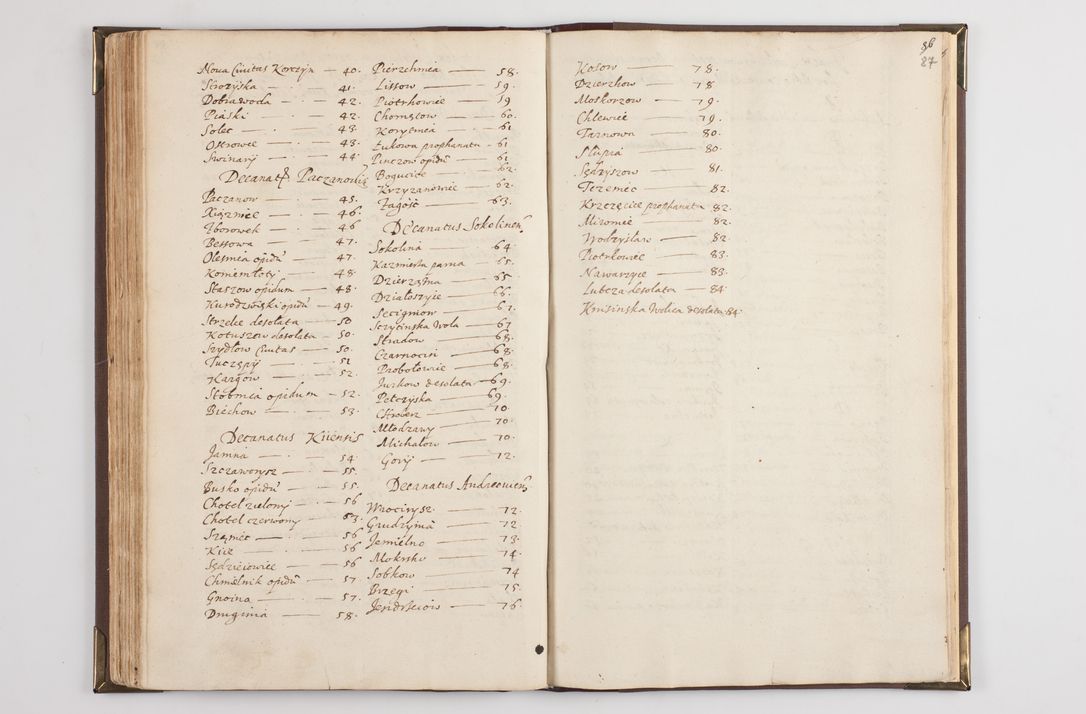 Noua Ciuitas Korczyn — 40.
Strozyska — 41.
Dobrawoda — 42.
Piaski — 42.
Solec — 43.
Ostrowce — 43.
Swiniary — 44.
Decanatq Paczanouiē
Paczanow — 45.
Xiązmce — 46.
Zborowek — 46
Bessowa — 47.
Olesnica opidū — 47.
Koniemłoty — 48.
Staszow opidum — 48.
Kurozwęski opidū — 49.
Strzelce desolata — 50
Kotuszow desolata — 50.
Szydlow Ciuitas — 50.
Tuczępy — 51
Kargow — 52.
Stobnica opidum — 52.
Biechow — 53.
Decanatus Kiiensis
Jamna — 54
Szczaworysz — 55.
Busko opidū — 55.
Chotel zielony — 56
Chotel czerwony — 53.
Szaniec — 56
Kiie — 56
Sędzieiowice — 56
Chmielnik opidū — 57.
Gnoina — 57.
Drugnia — 58.
Pierzchnica — 58.
Lissow — 59.
Piotrkowice — 59
Chomętow — 60.
Korytnica — 61
Łukowa prophanata — 61
Pinczow opidū — 61
Bogucice — 62.
Krzyzanowice — 62.
Zagość — 63.
Decanatus Sokolinen
Sokolina — 64
Kazmierza parua — 65.
Dzierązna — 65
Działoszyie — 66.
Secigniow — 67.
Sczytinska Wola — 67
Stradow — 68.
Czarnocin — 68.
Probołowice — 68.
Jurkow desolata — 69.
Pełczyska — 69.
Chroberz — 70
Młodzawy — 70.
Michałow — 70.
Gory — 12.
Decanatus Andreouien
Wrocirysz — 72.
Grudzyna — 72
Jemielno — 73.
Mokrsko — 74.
Sobkow — 74
Brzegi — 75.
Jendrzeiow — 76
36
87
Kosow — 78.
Dzierzkow — 78
Moskorzow — 79.
Chlewice — 79.
Tarnowa — 80.
Słupia — 80.
Sędzyszow — 81.
Trzemiec — 82.
Krzczęcice prophanata 82.
Mironiec — 82.
Wodzysław — 82.
Piotrkowic — 83.
Nawarzyce — 83.
Lubcza desolata — 84.
Krusinska Wolica desolata 84.